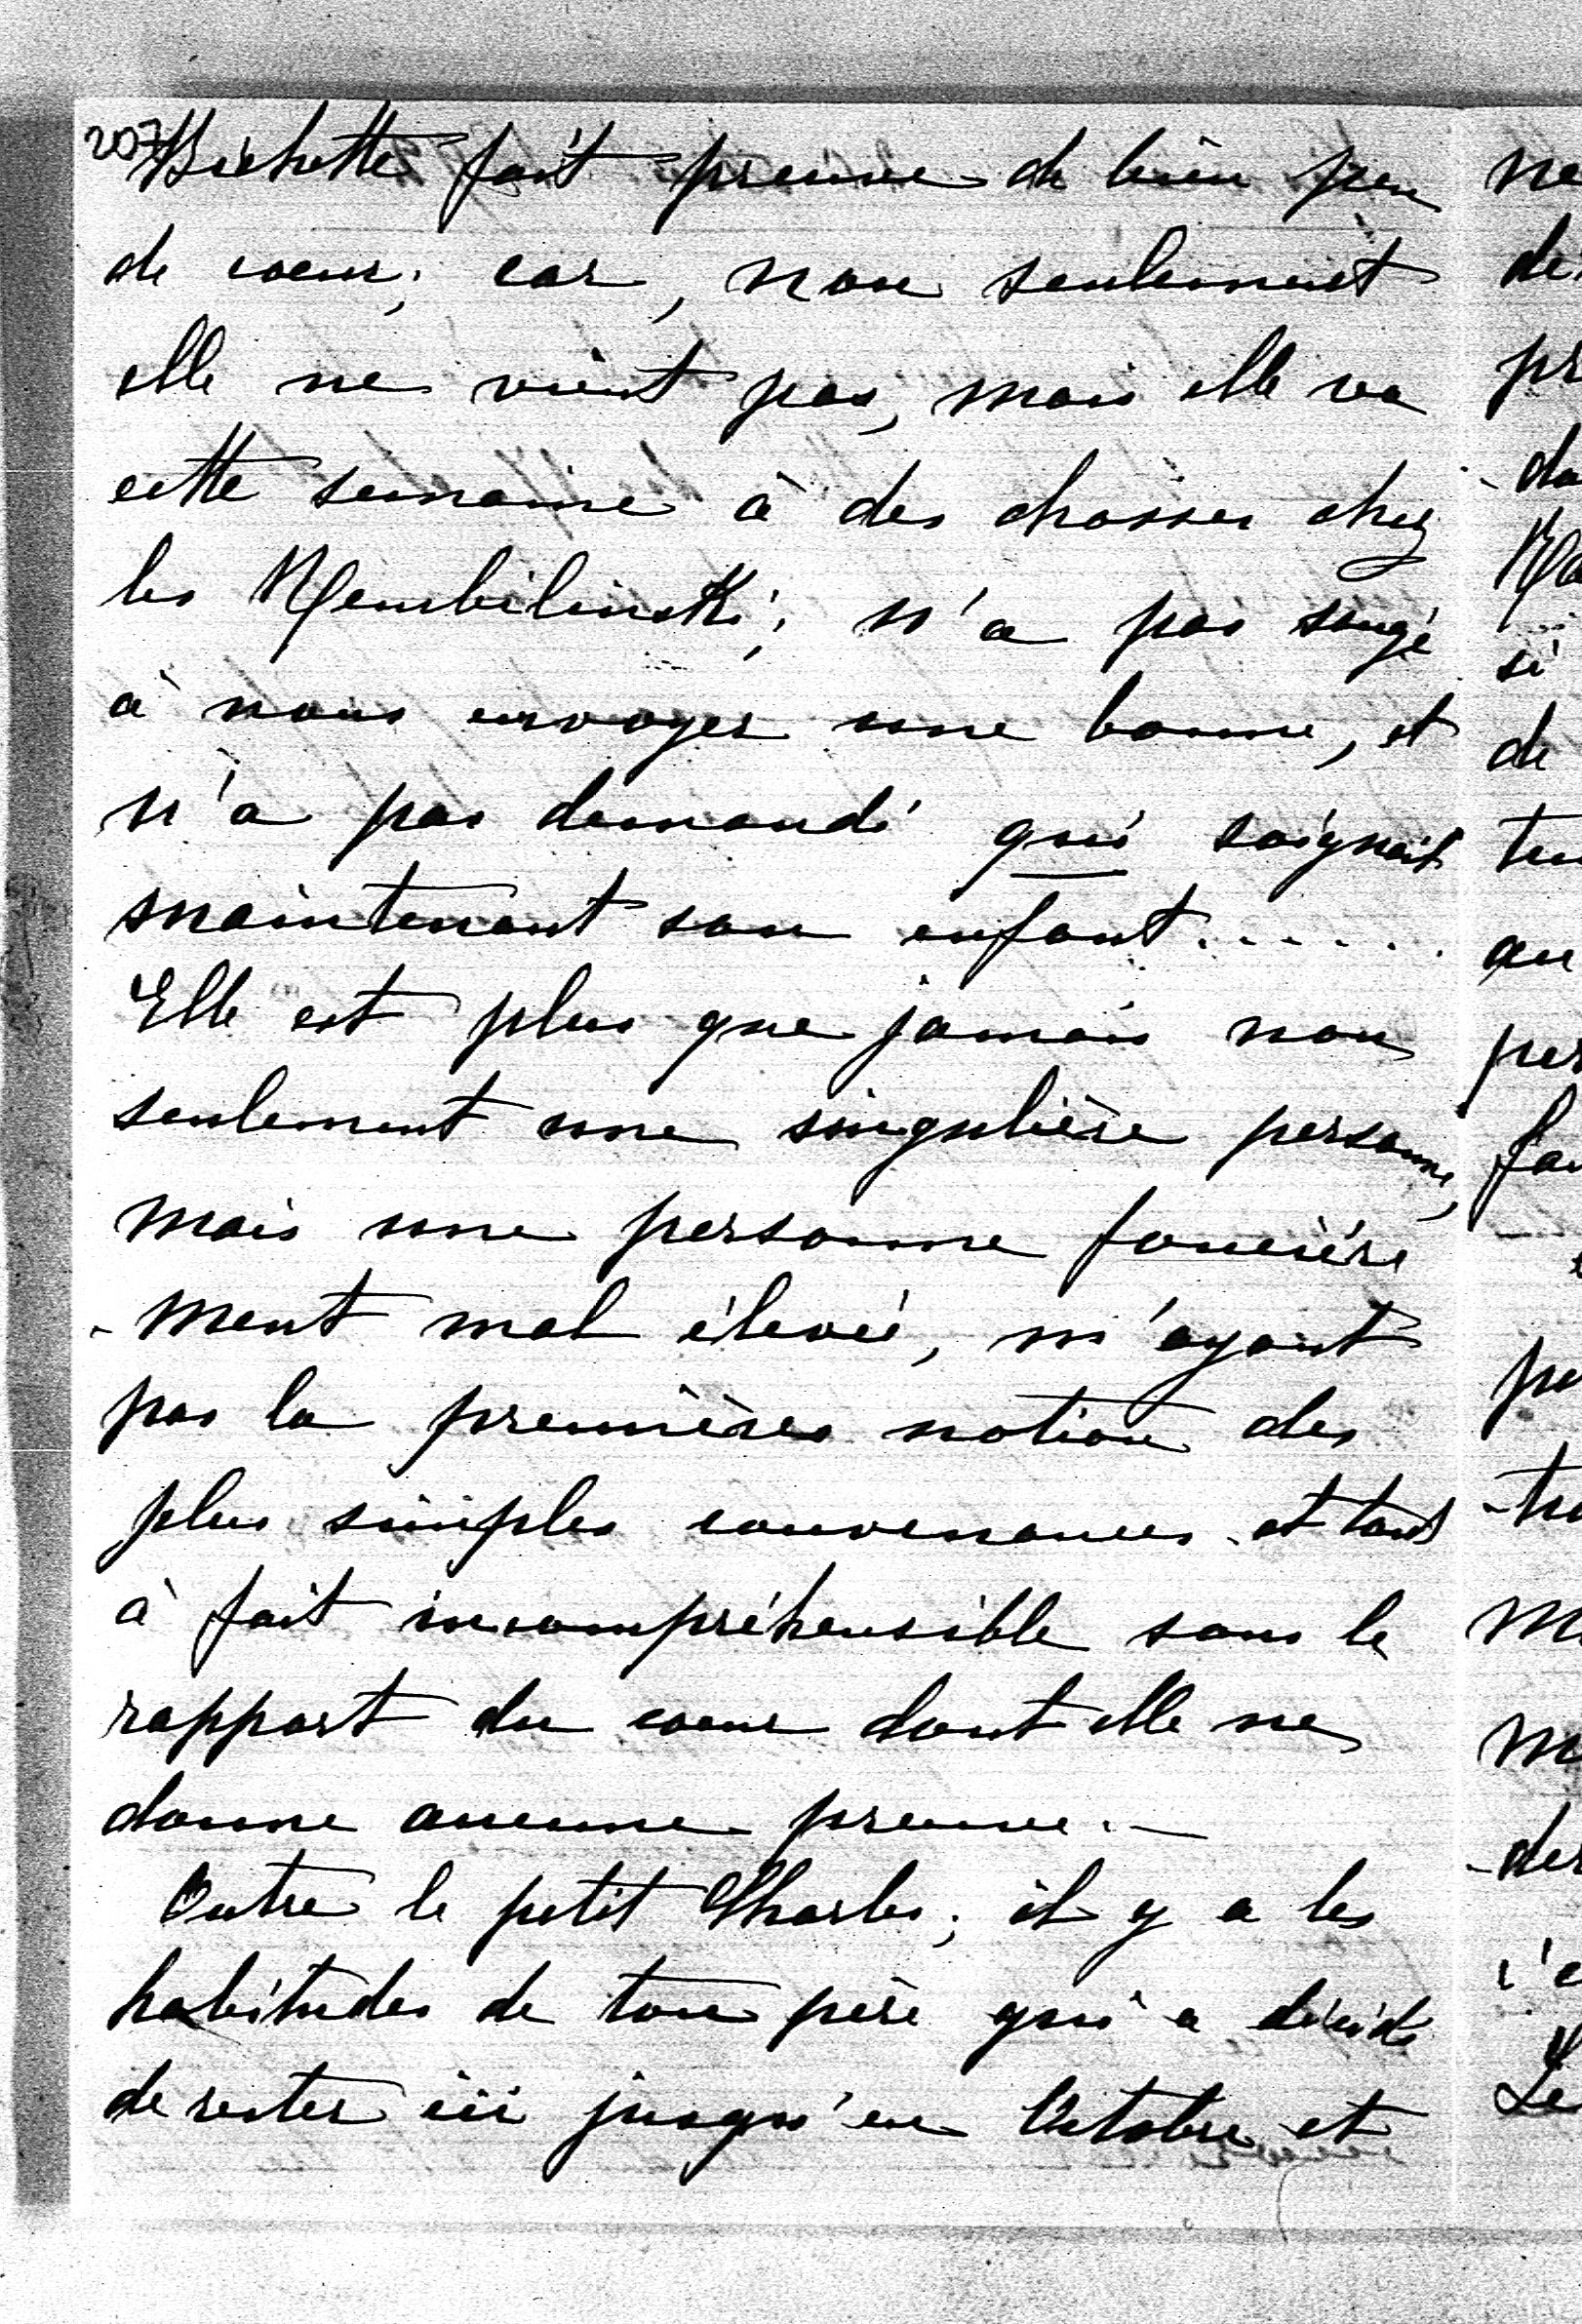 207
Bichette fait preuve de bien peu
de coeur; car, non seulement
elle ne vient pas, mais elle va
cette semaine à des chasses chez
les ; n'a pas songé
à nous envoyer une bonne, et
n'a pas demandé qui soignait
maintenant son enfant......
Elle est plus que jamais non
seulement une singulière personne,
mais une personne foncière
-ment mal élevée, n'ayant
pas la première notion des
plus simples convenances et tout
à fait incompréhensible sous le
rapport du coeur dont elle ne
donne aucune preuve.—
Outre le petit Charles, il y a les
habitudes de ton père qui a décidé
de rester ici jusqu'en Octobre et